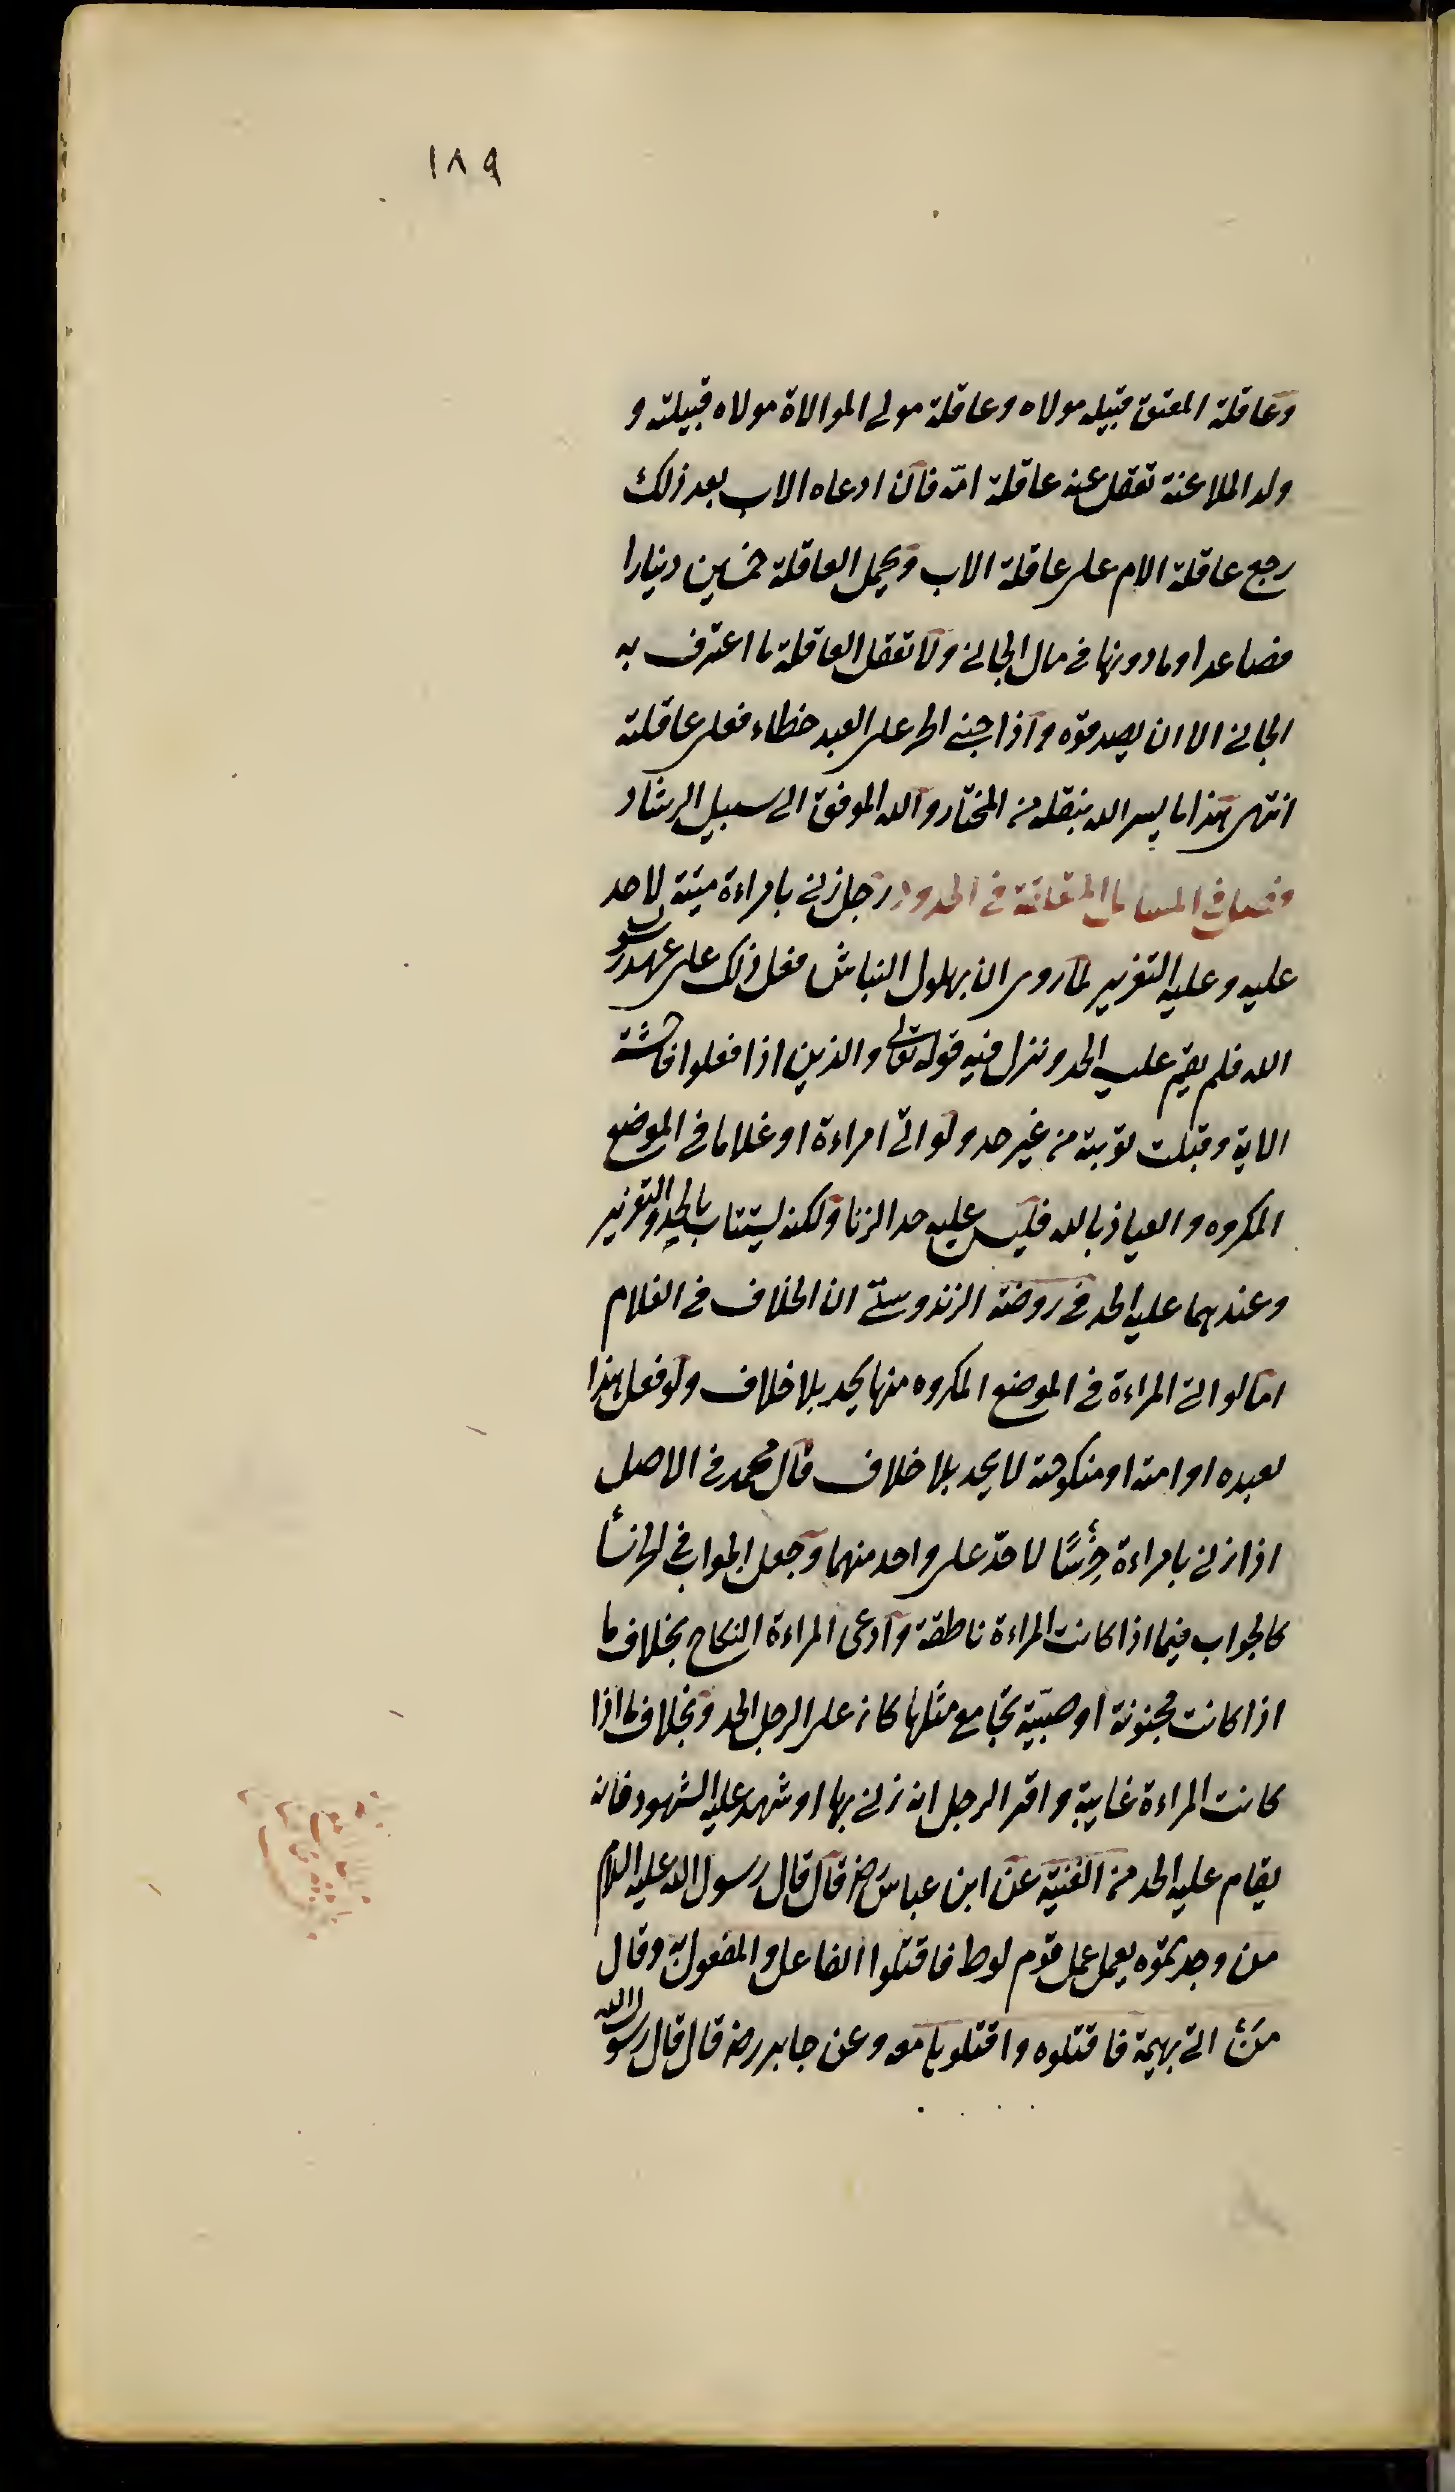 ١٨٩
وعاقلة المعتق قبيله مولاه وعاقلة مولى الموالاة مولاه قبيلته و
ولد الملاعنة تعقل عنه عاقلة امّه فان ادعاه الاب بعد ذلك
رجع عاقلة الام على عاقلة الاب ويحمل العاقلة خمسين دينارا
فصاعدا وما دونها في مال الجاني ولا تعقل العاقلة ما اعترف به
الجاني الا ان يصدقوه واذا جنى الحر على العبد خطاء فعلى عاقلته
انتهى هذا ما يسر الله بنقله من المختار والله الموفق الى سبيل الرشاد
وفصل في المسائل المتعلقة في الحدود رجل زنى بامراءة ميتة لا حد
عليه وعليه التعزير لما روى ان بهلول النباش فعل ذلك على عهد رسول
الله فلم يقم عليه الحد ونزل فيه قوله تعالى والذين اذا فعلوا فاحشة
الاية وقبلت توبته من غير حد ولو اتى امراءة او غلاما في الموضع
المكروه والعياذ بالله فليس عليه حد الزنا ولكنه يستتاب بالحد والتعزير
وعندهما عليه الحد في روضة الزندوستى ان الخلاف في الغلام
اما لو اتى المراءة في الموضع المكروه منها يحد بلا خلاف ولو فعل هذا
بعبده او امته او منكوحته لا يحد بلا خلاف قال محمد في الاصل
اذا زنى بامراءة خرسا لا حدّ على واحد منهما وجعل الجواب في الخرسا
كالجواب فيما اذا كانت المراءة ناطقة وادعى المراءة النكاح بخلاف ما
اذا كانت مجنونة او صبيّة تجامع مثلها كان على الرجل الحد وبخلاف ما اذا
كانت المراءة غايبة واقر الرجل انه زنى بها او شهد عليه الشهود فانه
يقام عليه الحد من الغنية عن ابن عباس رضه قال قال رسول الله عليه السلام
من وجدتموه يعمل عمل قوم لوط فاقتلوا الفاعل والمفعول به وقال
من اتى بهيمة فاقتلوه واقتلوها معه وعن جابر رضه قال قال رسول الله